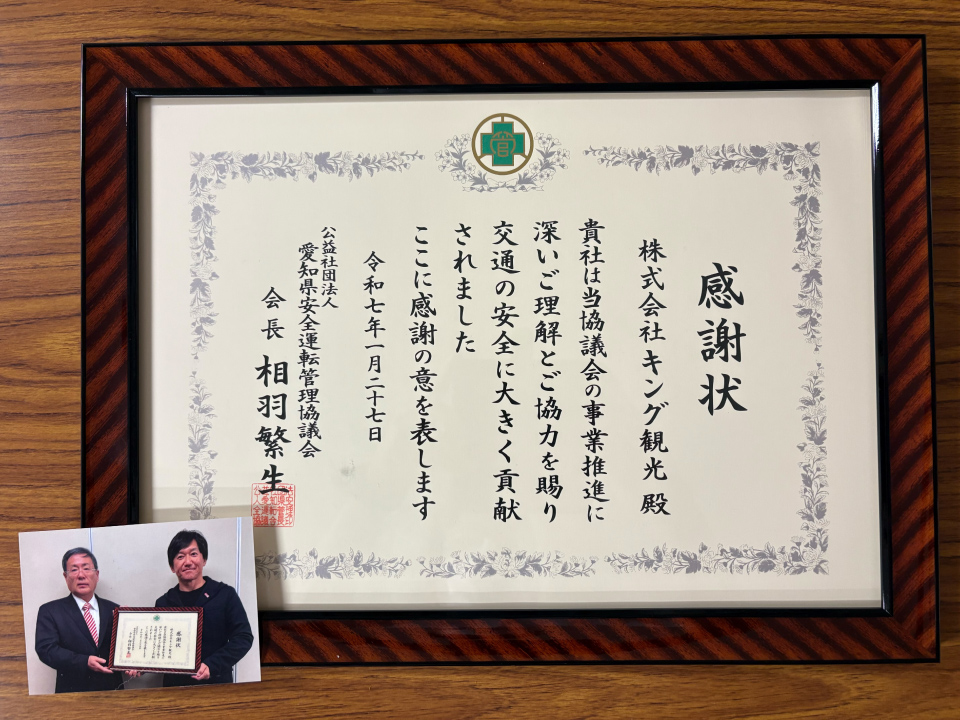 感謝状
株式会社キング観光 殿
貴社は当協議会の事業推進に
深いご理解とご協力を賜り
交通の安全に大きく貢献
されました
ここに感謝の意を表します
令和七年一月二十七日
公益社団法人
愛知県安全運転管理協議会
会長 相羽繁生
官
感謝状